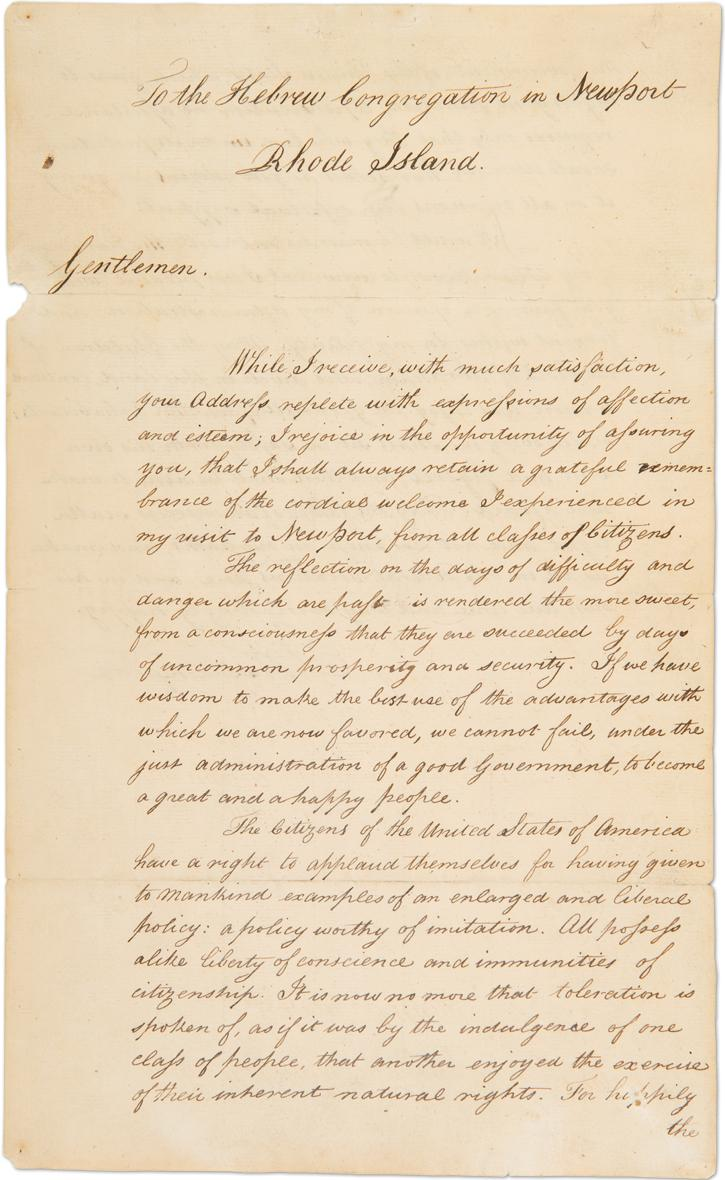 To the Hebrew Congregation in Newport
Rhode Island.
Gentlemen.
While, I receive, with much satisfaction,
your Address replete with expressions of affection
and esteem; I rejoice in the opportunity of assuring
you, that I shall always retain a grateful remem=
brance of the cordial welcome I experienced in
my visit to Newport, from all classes of Citizens.
The reflection on the days of difficulty and
danger which are past is rendered the more sweet,
from a consciousness that they are succeeded by days
of uncommon prosperity and security. If we have
wisdom to make the best use of the advantages with
which we are now favored, we cannot fail, under the
just administration of a good Government, to become
a great and a happy people.
The Citizens of the United States of America
have a right to applaud themselves for having given
to mankind examples of an enlarged and liberal
policy: a policy worthy of imitation. All possess
alike liberty of conscience and immunities of
citizenship. It is now no more that toleration is
spoken of, as if it was by the indulgence of one
class of people, that another enjoyed the exercise
of their inherent natural rights. For happily
the